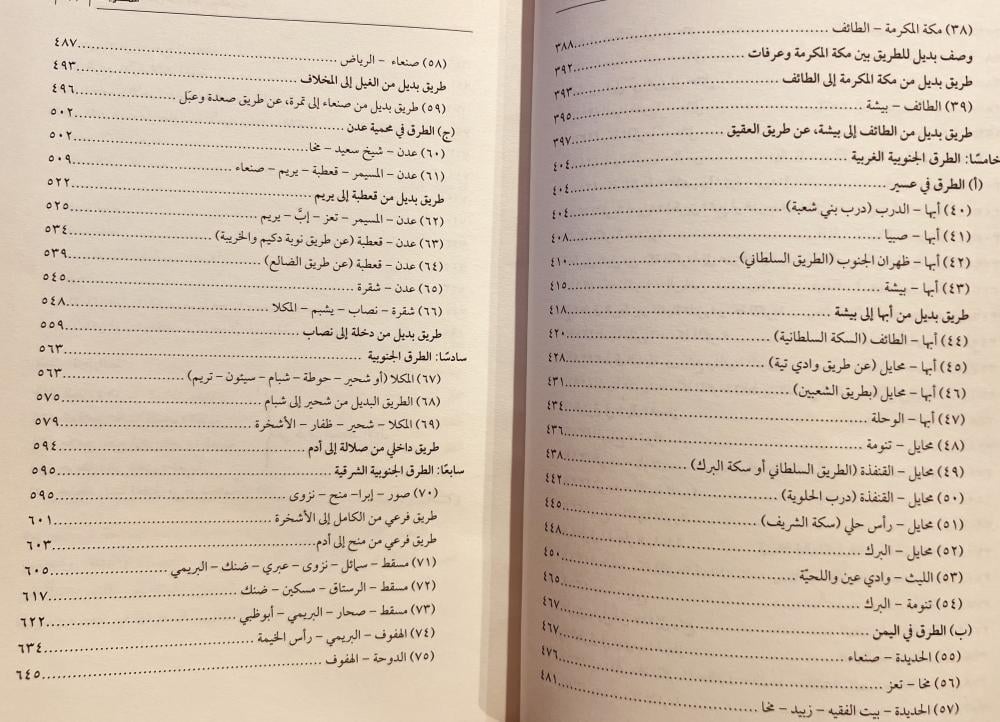 (٣٨) مكة المكرمة – الطائف ........ ٣٨٨
وصف بديل للطريق بين مكة المكرمة وعرفات ........ ٣٩٢
طريق بديل من مكة المكرمة إلى الطائف ........ ٣٩٣
(٣٩) الطائف – بيشة ........ ٣٩٥
طريق بديل من الطائف إلى بيشة، عن طريق العقيق ........ ٣٩٧
خامسًا: الطرق الجنوبية الغربية ........ ٤٠٤
(أ) الطرق في عسير ........ ٤٠٤
(٤٠) أبها – الدرب (درب بني شعبة) ........ ٤٠٤
(٤١) أبها – صبيا ........ ٤٠٨
(٤٢) أبها – ظهران الجنوب (الطريق السلطاني) ........ ٤١٠
(٤٣) أبها – بيشة ........ ٤١٥
طريق بديل من أبها إلى بيشة ........ ٤١٨
(٤٤) أبها – الطائف (السكة السلطانية) ........ ٤٢٠
(٤٥) أبها – محايل (عن طريق وادي تية) ........ ٤٢٨
(٤٦) أبها – محايل (بطريق الشعبين) ........ ٤٣١
(٤٧) أبها – الوحلة ........ ٤٣٤
(٤٨) محايل – تنومة ........ ٤٣٦
(٤٩) محايل – القنفذة (الطريق السلطاني أو سكة البرك) ........ ٤٣٨
(٥٠) محايل – القنفذة (درب الحلوية) ........ ٤٤٢
(٥١) محايل – رأس حلي (سكة الشريف) ........ ٤٤٥
(٥٢) محايل – البرك ........ ٤٤٨
(٥٣) الليث – وادي عين واللحيّة ........ ٤٥٠
(٥٤) تنومة – البرك ........ ٤٦٥
(ب) الطرق في اليمن ........ ٤٦٧
(٥٥) الحديدة – صنعاء ........ ٤٦٧
(٥٦) مخا – تعز ........ ٤٧٦
(٥٧) الحديدة – بيت الفقيه – زبيد – مخا ........ ٤٨١
(٥٨) صنعاء – الرياض ........ ٤٨٧
طريق بديل من الغيل إلى المخلاف ........ ٤٩٣
(٥٩) طريق بديل من صنعاء إلى تمرة، عن طريق صعدة وعبَل ........ ٤٩٦
(ج) الطرق في محمية عدن ........ ٥٠٢
(٦٠) عدن – شيخ سعيد – مخا ........ ٥٠٢
(٦١) عدن – المسيمر – قعطبة – يريم – صنعاء ........ ٥٠٩
طريق بديل من قعطبة إلى يريم ........ ٥٢٢
(٦٢) عدن – المسيمر – تعز – إبَّ – يريم ........ ٥٢٥
(٦٣) عدن – قعطبة (عن طريق نوبة دكيم والخريبة) ........ ٥٣٤
(٦٤) عدن – قعطبة (عن طريق الضالع) ........ ٥٣٩
(٦٥) عدن – شقرة ........ ٥٤٥
(٦٦) شقرة – نصاب – يشبم – المكلا ........ ٥٤٨
طريق بديل من دخلة إلى نصاب ........ ٥٥٩
سادسًا: الطرق الجنوبية ........ ٥٦٣
(٦٧) المكلا (أو شحير – حوطة – شبام – سيئون – تريم) ........ ٥٦٣
(٦٨) الطريق البديل من شحير إلى شبام ........ ٥٧٥
(٦٩) المكلا – شحير – ظفار – الأشخرة ........ ٥٧٩
طريق داخلي من صلالة إلى أدم ........ ٥٩٤
سابعًا: الطرق الجنوبية الشرقية ........ ٥٩٥
(٧٠) صور – إبرا– منح – نزوى ........ ٥٩٥
طريق فرعي من الكامل إلى الأشخرة ........ ٦٠١
طريق فرعي من منح إلى أدم ........ ٦٠٣
(٧١) مسقط – سمائل – نزوى – عبري – ضنك – البريمي ........ ٦٠٥
(٧٢) مسقط – الرستاق – مسكين – ضنك ........ ٦١٧
(٧٣) مسقط – صحار – البريمي – أبوظبي ........ ٦٢٢
(٧٤) الهفوف – البريمي – رأس الخيمة ........ ٦٣٤
(٧٥) الدوحة – الهفوف ........ ٦٤٥